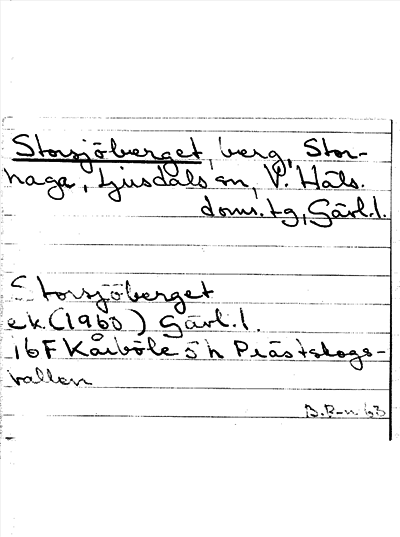 Storsjöberget, berg, Stor-
haga, Ljusdals sn, V. Häls.
doms.tg, Gävl.l.
Storsjöberget
ek. (1960) Gävl.l.
16F Kårböle ö h Prästskogs-
vallen
B.R-n. 63